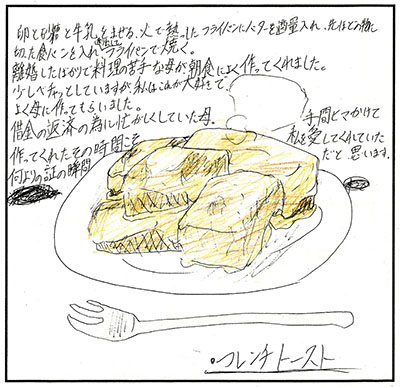 卵と砂糖と牛乳をまぜる、火で熱したフライパンにバターを適量入れ、先ほどの物に
切った食パンを入れフライパンで焼く。
離婚したばかりで料理の苦手な母が朝食によく作ってくれました。
少しべチャッとしていますが私はこれが大好きで、
よく母に作ってもらいました。
借金の返済の為に忙がしくしていた母、
作ってくれたその時間こそ
何よりの証の瞬間
手間ヒマかけて
私を愛してくれていた
だと思います。
・フレンチトースト